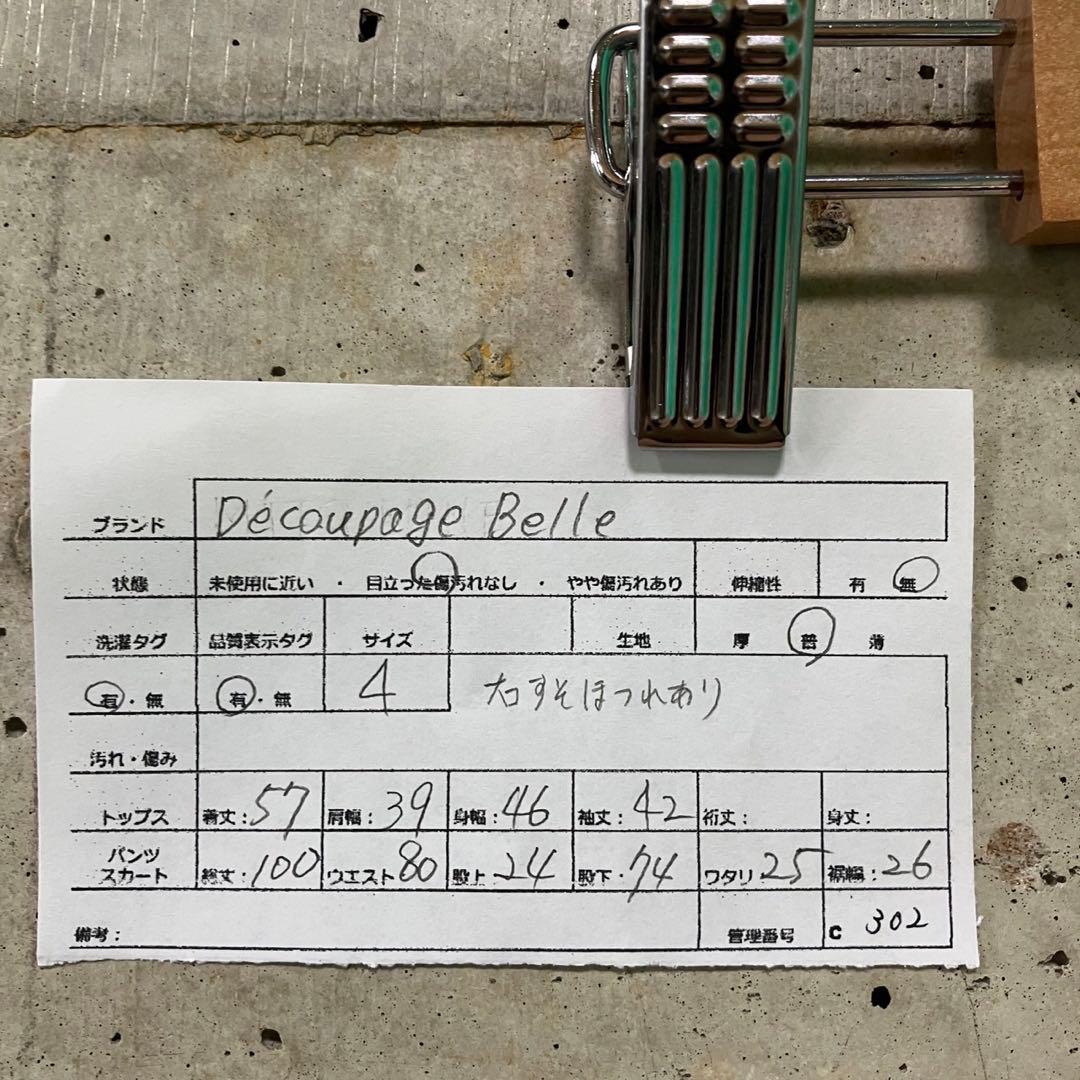 ブランド Découpage Belle
状態 未使用に近い ・ 目立った傷汚れなし ・ やや傷汚れあり 伸縮性 有 無
洗濯タグ 品質表示タグ サイズ 生地 厚 普 薄
有・無 有・無 4 すそほつれあり
汚れ・傷み
トップス 着丈:57 肩幅:39 身幅:46 袖丈:42 裄丈: 身丈:
パンツ
スカート 総丈:100 ウエスト80 股上:24 股下:74 ワタリ25 裾幅:26
備考: 管理番号 C 302